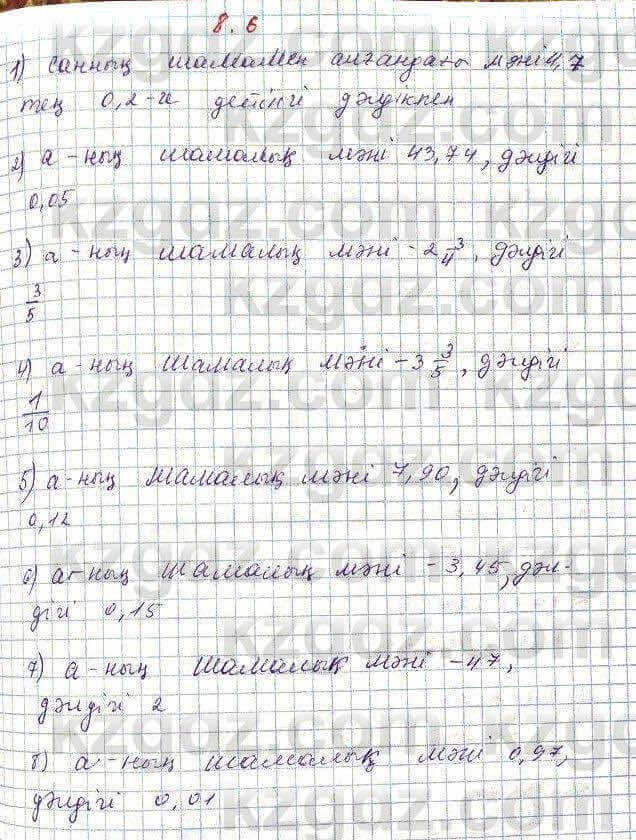 8.6
1) санның шамамен алғандағы мәні 4,7
тең 0,2-ге дейінгі дәлдікпен
2) а-ның шамалық мәні 43,74, дәлдігі
0,05
3) а-ның шамалық мәні -2 3/4, дәлдігі
3/5
4) а-ның шамалық мәні -3 3/5, дәлдігі
1/10
5) а-ның шамалық мәні 7,90, дәлдігі
0,12
6) а-ның шамалық мәні -3,45, дәл-
дігі 0,15
7) а-ның шамалық мәні -47,
дәлдігі 2
8) а-ның шамалық мәні 0,97,
дәлдігі 0,01
kzgdz.com